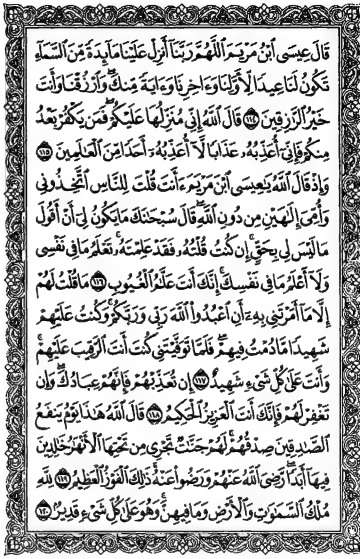 قَالَ عِيسَى ٱبْنُ مَرْيَمَ ٱللَّهُمَّ رَبَّنَآ أَنزِلْ عَلَيْنَا مَآئِدَةً مِّنَ ٱلسَّمَآءِ
تَكُونُ لَنَا عِيدًا لِّأَوَّلِنَا وَءَاخِرِنَا وَءَايَةً مِّنكَ ۖ وَٱرْزُقْنَا وَأَنتَ
خَيْرُ ٱلرَّٰزِقِينَ ١١٤ قَالَ ٱللَّهُ إِنِّي مُنَزِّلُهَا عَلَيْكُمْ ۖ فَمَن يَكْفُرْ بَعْدُ
مِنكُمْ فَإِنِّيٓ أُعَذِّبُهُۥ عَذَابًا لَّآ أُعَذِّبُهُۥٓ أَحَدًا مِّنَ ٱلْعَٰلَمِينَ ١١٥
وَإِذْ قَالَ ٱللَّهُ يَٰعِيسَى ٱبْنَ مَرْيَمَ ءَأَنتَ قُلْتَ لِلنَّاسِ ٱتَّخِذُونِي
وَأُمِّيَ إِلَٰهَيْنِ مِن دُونِ ٱللَّهِ ۖ قَالَ سُبْحَٰنَكَ مَا يَكُونُ لِيٓ أَنْ أَقُولَ
مَا لَيْسَ لِي بِحَقٍّ ۚ إِن كُنتُ قُلْتُهُۥ فَقَدْ عَلِمْتَهُۥ ۚ تَعْلَمُ مَا فِي نَفْسِي
وَلَآ أَعْلَمُ مَا فِي نَفْسِكَ ۚ إِنَّكَ أَنتَ عَلَّٰمُ ٱلْغُيُوبِ ١١٦ مَا قُلْتُ لَهُمْ
إِلَّا مَآ أَمَرْتَنِي بِهِۦٓ أَنِ ٱعْبُدُوا۟ ٱللَّهَ رَبِّي وَرَبَّكُمْ ۚ وَكُنتُ عَلَيْهِمْ
شَهِيدًا مَّا دُمْتُ فِيهِمْ ۖ فَلَمَّا تَوَفَّيْتَنِي كُنتَ أَنتَ ٱلرَّقِيبَ عَلَيْهِمْ ۚ
وَأَنتَ عَلَىٰ كُلِّ شَيْءٍ شَهِيدٌ ١١٧ إِن تُعَذِّبْهُمْ فَإِنَّهُمْ عِبَادُكَ ۖ وَإِن
تَغْفِرْ لَهُمْ فَإِنَّكَ أَنتَ ٱلْعَزِيزُ ٱلْحَكِيمُ ١١٨ قَالَ ٱللَّهُ هَٰذَا يَوْمُ يَنفَعُ
ٱلصَّٰدِقِينَ صِدْقُهُمْ ۚ لَهُمْ جَنَّٰتٌ تَجْرِي مِن تَحْتِهَا ٱلْأَنْهَٰرُ خَٰلِدِينَ
فِيهَآ أَبَدًا ۚ رَّضِيَ ٱللَّهُ عَنْهُمْ وَرَضُوا۟ عَنْهُ ۚ ذَٰلِكَ ٱلْفَوْزُ ٱلْعَظِيمُ ١١٩ لِلَّهِ
مُلْكُ ٱلسَّمَٰوَٰتِ وَٱلْأَرْضِ وَمَا فِيهِنَّ ۚ وَهُوَ عَلَىٰ كُلِّ شَيْءٍ قَدِيرٌ ١٢٠